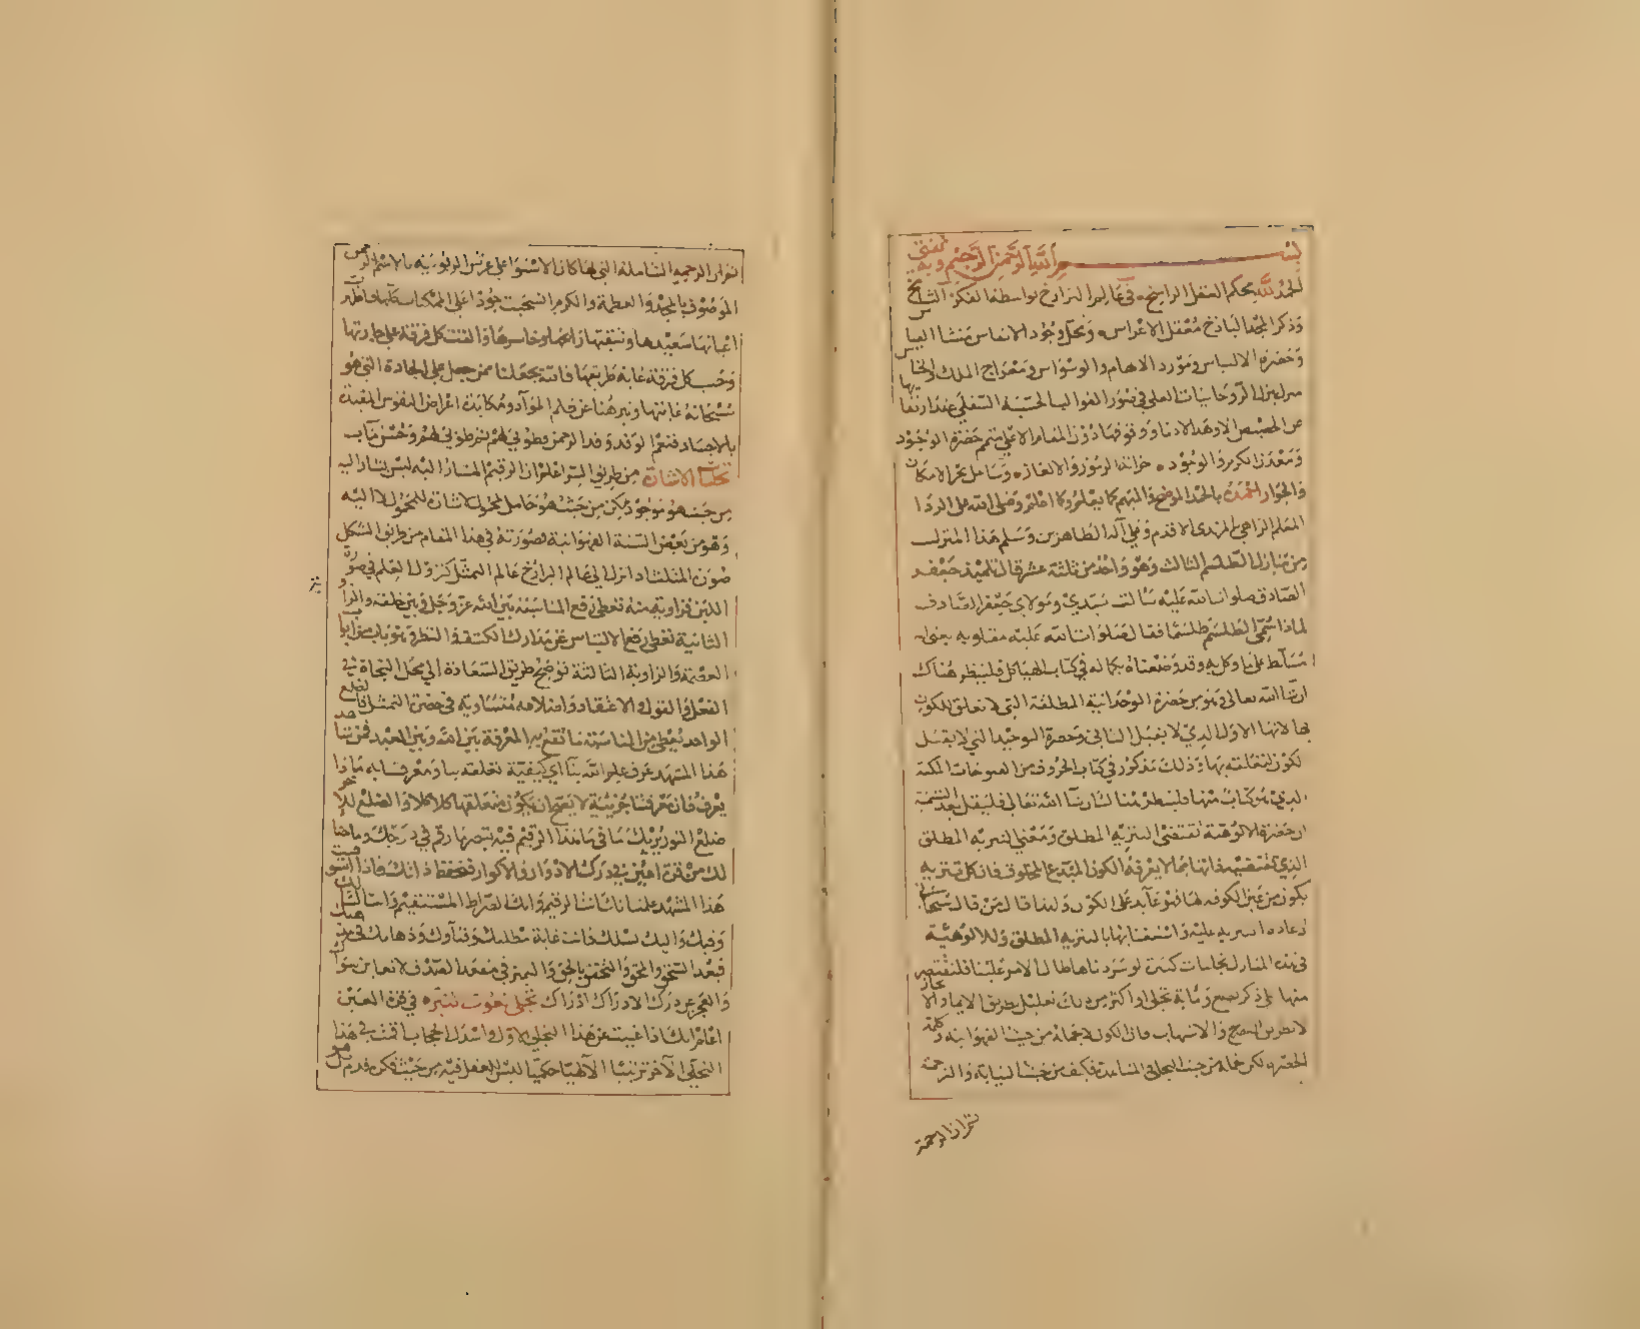 بسم الله الرحمن الرحيم وبه ثقتي
الحمد لله محكم العقل الراسخ في عالم البرازخ بواسطة الفكر الشامخ
وذكر المجد الباذخ معقل الاعراس ومحل وجود الانفاس منشا القياس
وحضرة الالباس ومورد الالهام والوسواس ومعراج الملك والخناس
منزل تنزل الروحانيات العلى في صور القوالب الحسية السفلى عند ارتقائها
عن الحضيض الاوهد الادنا ووقوفها دون المقام الاعلى متمم حضرة الوجود
ومعدن الكرم والوجود خزانة الرموز والالغاز وساحل بحر الامكان
والجواز احمده بالحمد الموضح والمبهم كما يعلم وكما اعلم وصلى الله على الردا
المعلم الزاهي المرتدى الاقدم وعلى اله الطاهرين وسلم هذا المنزل
من منازل الطلسم الثالث وهو واحد من ثلثة عشر قال تلميذ جعفر
الصادق صلوات الله عليه سالت سيدي ومولاي جعفر الصادق
لماذا سمى الطلسم طلسما فقال صلوات الله عليه مقلوبه يعنى انه
مسلط على ما وكل به وقد وضعناه بكماله في كتاب الهياكل فلينظر هناك
ان شا الله تعالى وهو من حضرة الوحدانية المطلقة التي لا تعلق للكون
بها لانها الاول الذي لا يقبل الثانى وحضرة التوحيد التي لا يقبل
الكون لتعلقه بها وذلك مذكور في كتاب الحروف من الفتوحات المكية
الذي هو كتاب منها فلينظر هنا ان شا الله تعالى فليقل بعد التسمية
ان حضرة الالوهية تقتضى التنزيه المطلق ومعنى التنزيه المطلق
الذي تقتضيه ذاتها مما لا يعرفه الكون المبتدع المخلوق فان كل تنزيه
يكون من عين الكون لها فهو عايد على الكون ولهذا قال من قال سبحانى
لاعادة التنزيه عليه واستغنائها بالتنزيه المطلق وللالوهية
في هذه المنازل تجليات كثيرة لو سردناها طال الامر علينا فلنقتصر
منها على ذكر بضع ومائة تجلى او اكثر من ذلك بقليل بطريق الايما والايجاز
لا بطريق التصريح والاسهاب فان الكون لا يحمله من حيث الفهوانية وكلمة
الحضرة لكن يحمله من حيث التجلى والمشاهدة فكيف من حيث النيابة والترجمة
ثم ان الرحمة
ثم ان الرحمة الشاملة التي بها كان الاستوا على عرش الربوبية بالاسم الرحمن
الموصوف بالمجد والعظمة والكرم انسحبت جودا على الممكنات كلها فاظهرت
اعيانها سعيدها وشقيها رابحها وخاسرها والقت كل فرقة على جادتها
وحسب كل فرقة غاية طريقها فالله يجعلنا ممن جعل على الجادة التي هو
سبحانه غايتها وينزهنا عن ظلم المواد ومكابدة اغراض النفوس المقيدة
بالاجساد فنعم الوفد وفد الرحمن وطوبى لهم ثم طوبى لهم وحسن ماب
تجلى الاشارة من طريق السر اعلم ان الرقيم المشار اليه ليس يشار اليه
من حيث هو موجود لكن من حيث هو حامل لمحمول الاشارة للمحمول لا اليه
وهو من بعض السنة الفهوانية فصورته في هذا المقام من طريق الشكل
صورة المثلث اذا نزل الى عالم البرازخ عالم التمثل كنزول العلم في صورة
اللبن فزاوية منه تعطى رفع المناسبة بين الله عز وجل وبين خلقه والزاوية
الثانية تعطى رفع الالتباس عن مدارك الكشف والنظر وهو باب من ابواب
العظمة والزاوية الثالثة توضح طريق السعادة الى محل النجاة في
الفعل والقول والاعتقاد واضلاعه متساوية في حضرة التمثل فالضلع
الواحد يعطى من المناسبة ما تقع به المعرفة بين الله وبين العبد فمن شا
هذا المشهد عرف علم الله بنا اي كيفية تعلقه بنا ومعرفتنا به ماذا
يعرف فان معرفتنا جزئية لا يصح ان يكون متعلقها كلا كلا والضلع الاخر
ضلع النور يريك ما في هذا الرقيم فيه تبصر ما رقم في درجك وما خبا
لك من قرة اعين في درك الادوار والاكوار فتحفظ ذاتك فاذا استوفيت
هذا المشهد علمت انك انت الرقيم وانك الصراط المستقيم وانت السالك
وفيك واليك تسلك فانت غاية مطلبك وفناوك وذهابك في مذهبك
فبعد السحق والمحق والتحقق بالحق والتميز في مقعد الصدق لا تعاين سواك
والعجز عن درك الادراك ادراك تجلى نعوت التنزه في قرة العين
اعلم انك اذا غيبت عن هذا التجلى الاول واسدل الحجاب اقمت في هذا
التجلى الاخر ترتيبا الاهيا حكميا ليس للعقل فيه من حيث فكره قدم بل هو